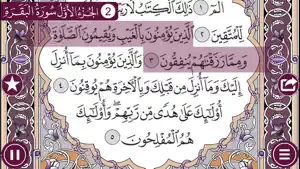 2 الجزء الأول سورة البقرة
الٓمٓ ۝١ ذَٰلِكَ ٱلْكِتَٰبُ لَا رَيْبَ
لِّلْمُتَّقِينَ ۝٢ ٱلَّذِينَ يُؤْمِنُونَ بِٱلْغَيْبِ وَيُقِيمُونَ ٱلصَّلَوٰةَ
وَمِمَّا رَزَقْنَٰهُمْ يُنفِقُونَ ۝٣ وَٱلَّذِينَ يُؤْمِنُونَ بِمَآ أُنزِلَ
إِلَيْكَ وَمَآ أُنزِلَ مِن قَبْلِكَ وَبِٱلْءَاخِرَةِ هُمْ يُوقِنُونَ ۝٤
أُو۟لَٰٓئِكَ عَلَىٰ هُدًى مِّن رَّبِّهِمْ ۖ وَأُو۟لَٰٓئِكَ
هُمُ ٱلْمُفْلِحُونَ ۝٥